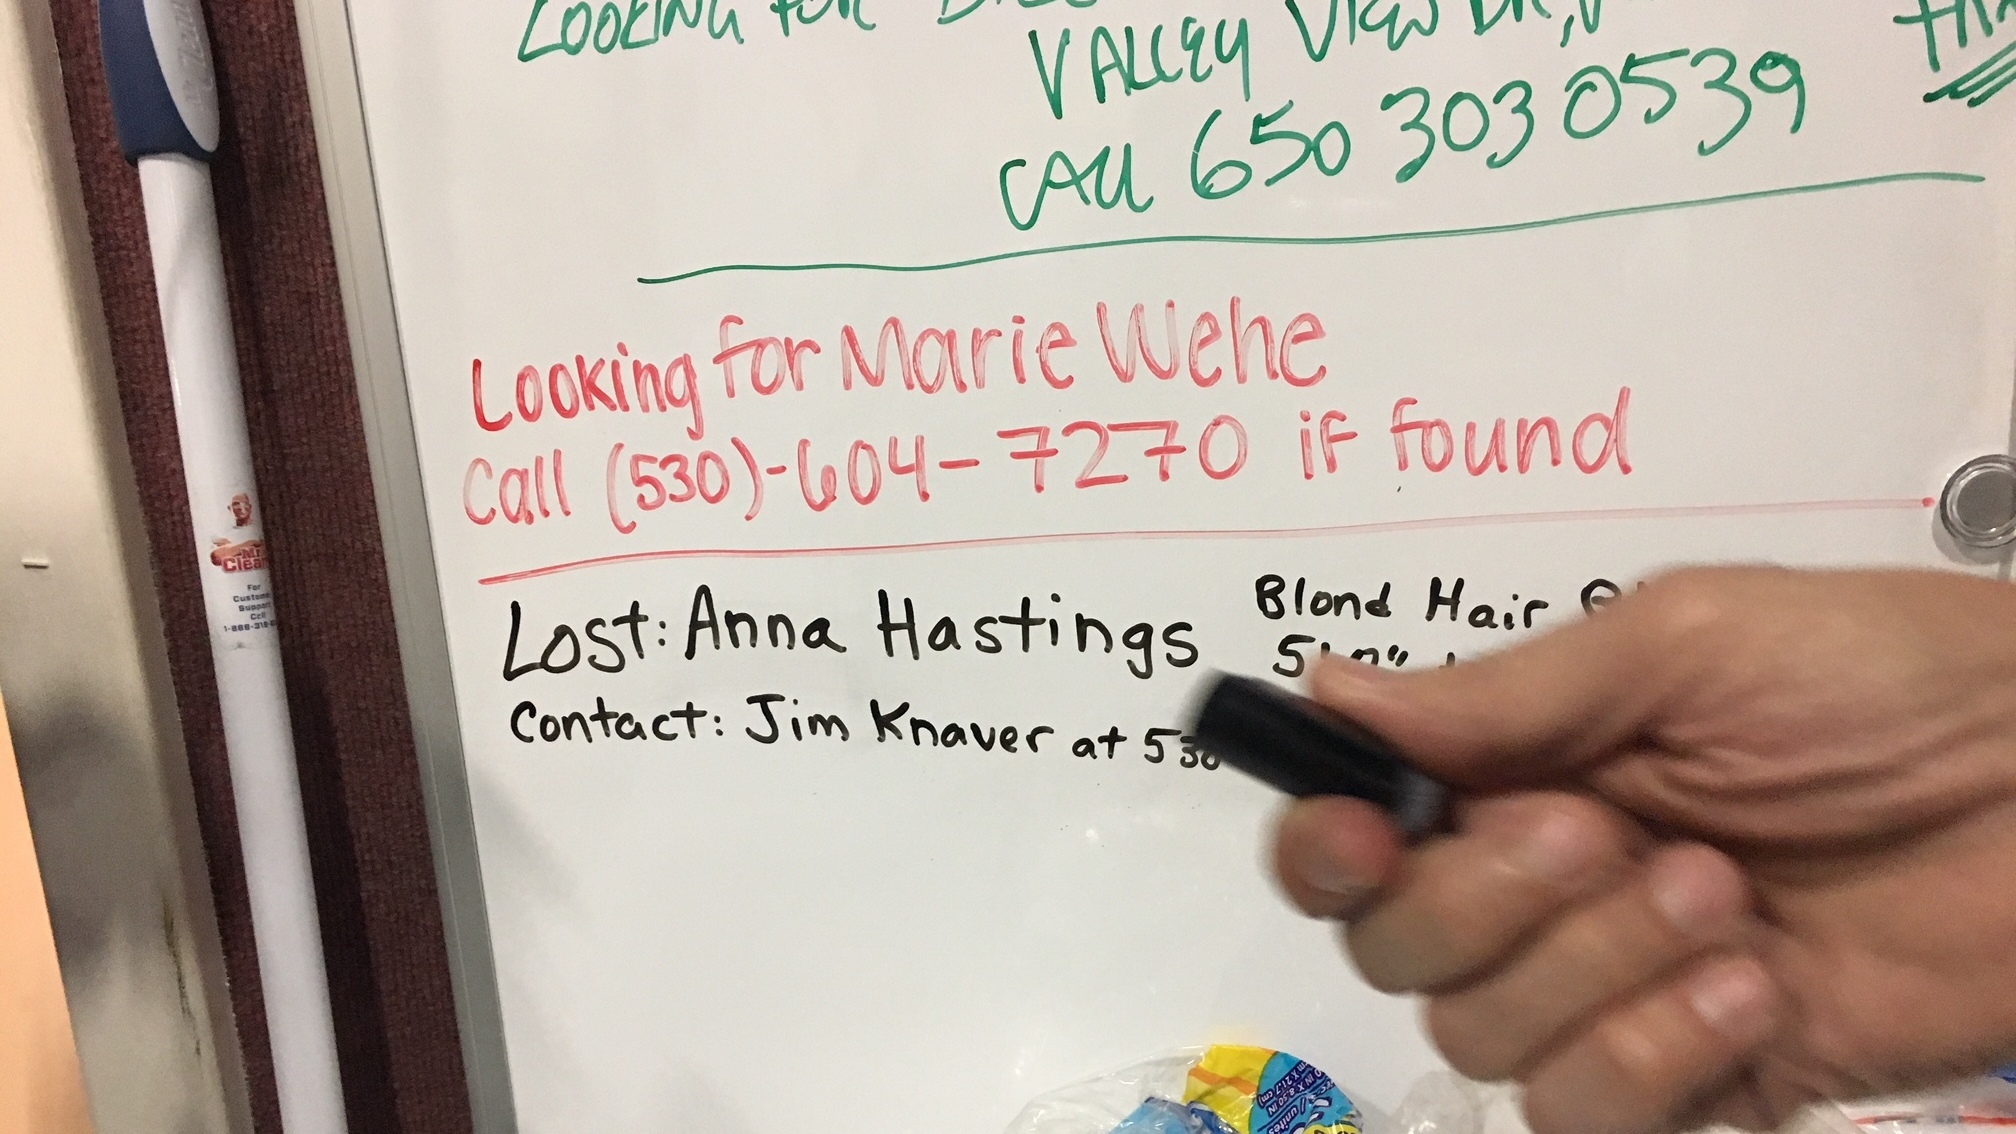 LOOKING FOR
VALLEY VIEW DR,
CALL 650 303 0539
Looking for Marie Wehe
Call (530)-604-7270 if found
Lost: Anna Hastings
Blond Hair
Contact: Jim Knaver at 530
Mr. Clean
For
Customer
Support
Call